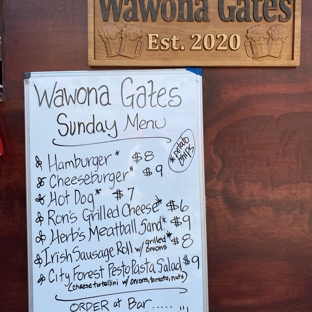 Wawona Gates
Est. 2020
Wawona Gates
Sunday Menu
* potato chips
Hamburger* $8
Cheeseburger* $9
Hot Dog* $7
Ron's Grilled Cheese* $6
Herb's Meatball Sand* $9
Irish Sausage Roll w/ grilled onions* $8
City Forest Pesto Pasta Salad $9
(cheese tortellini w/ onions, tomato, nuts)
ORDER at Bar.....